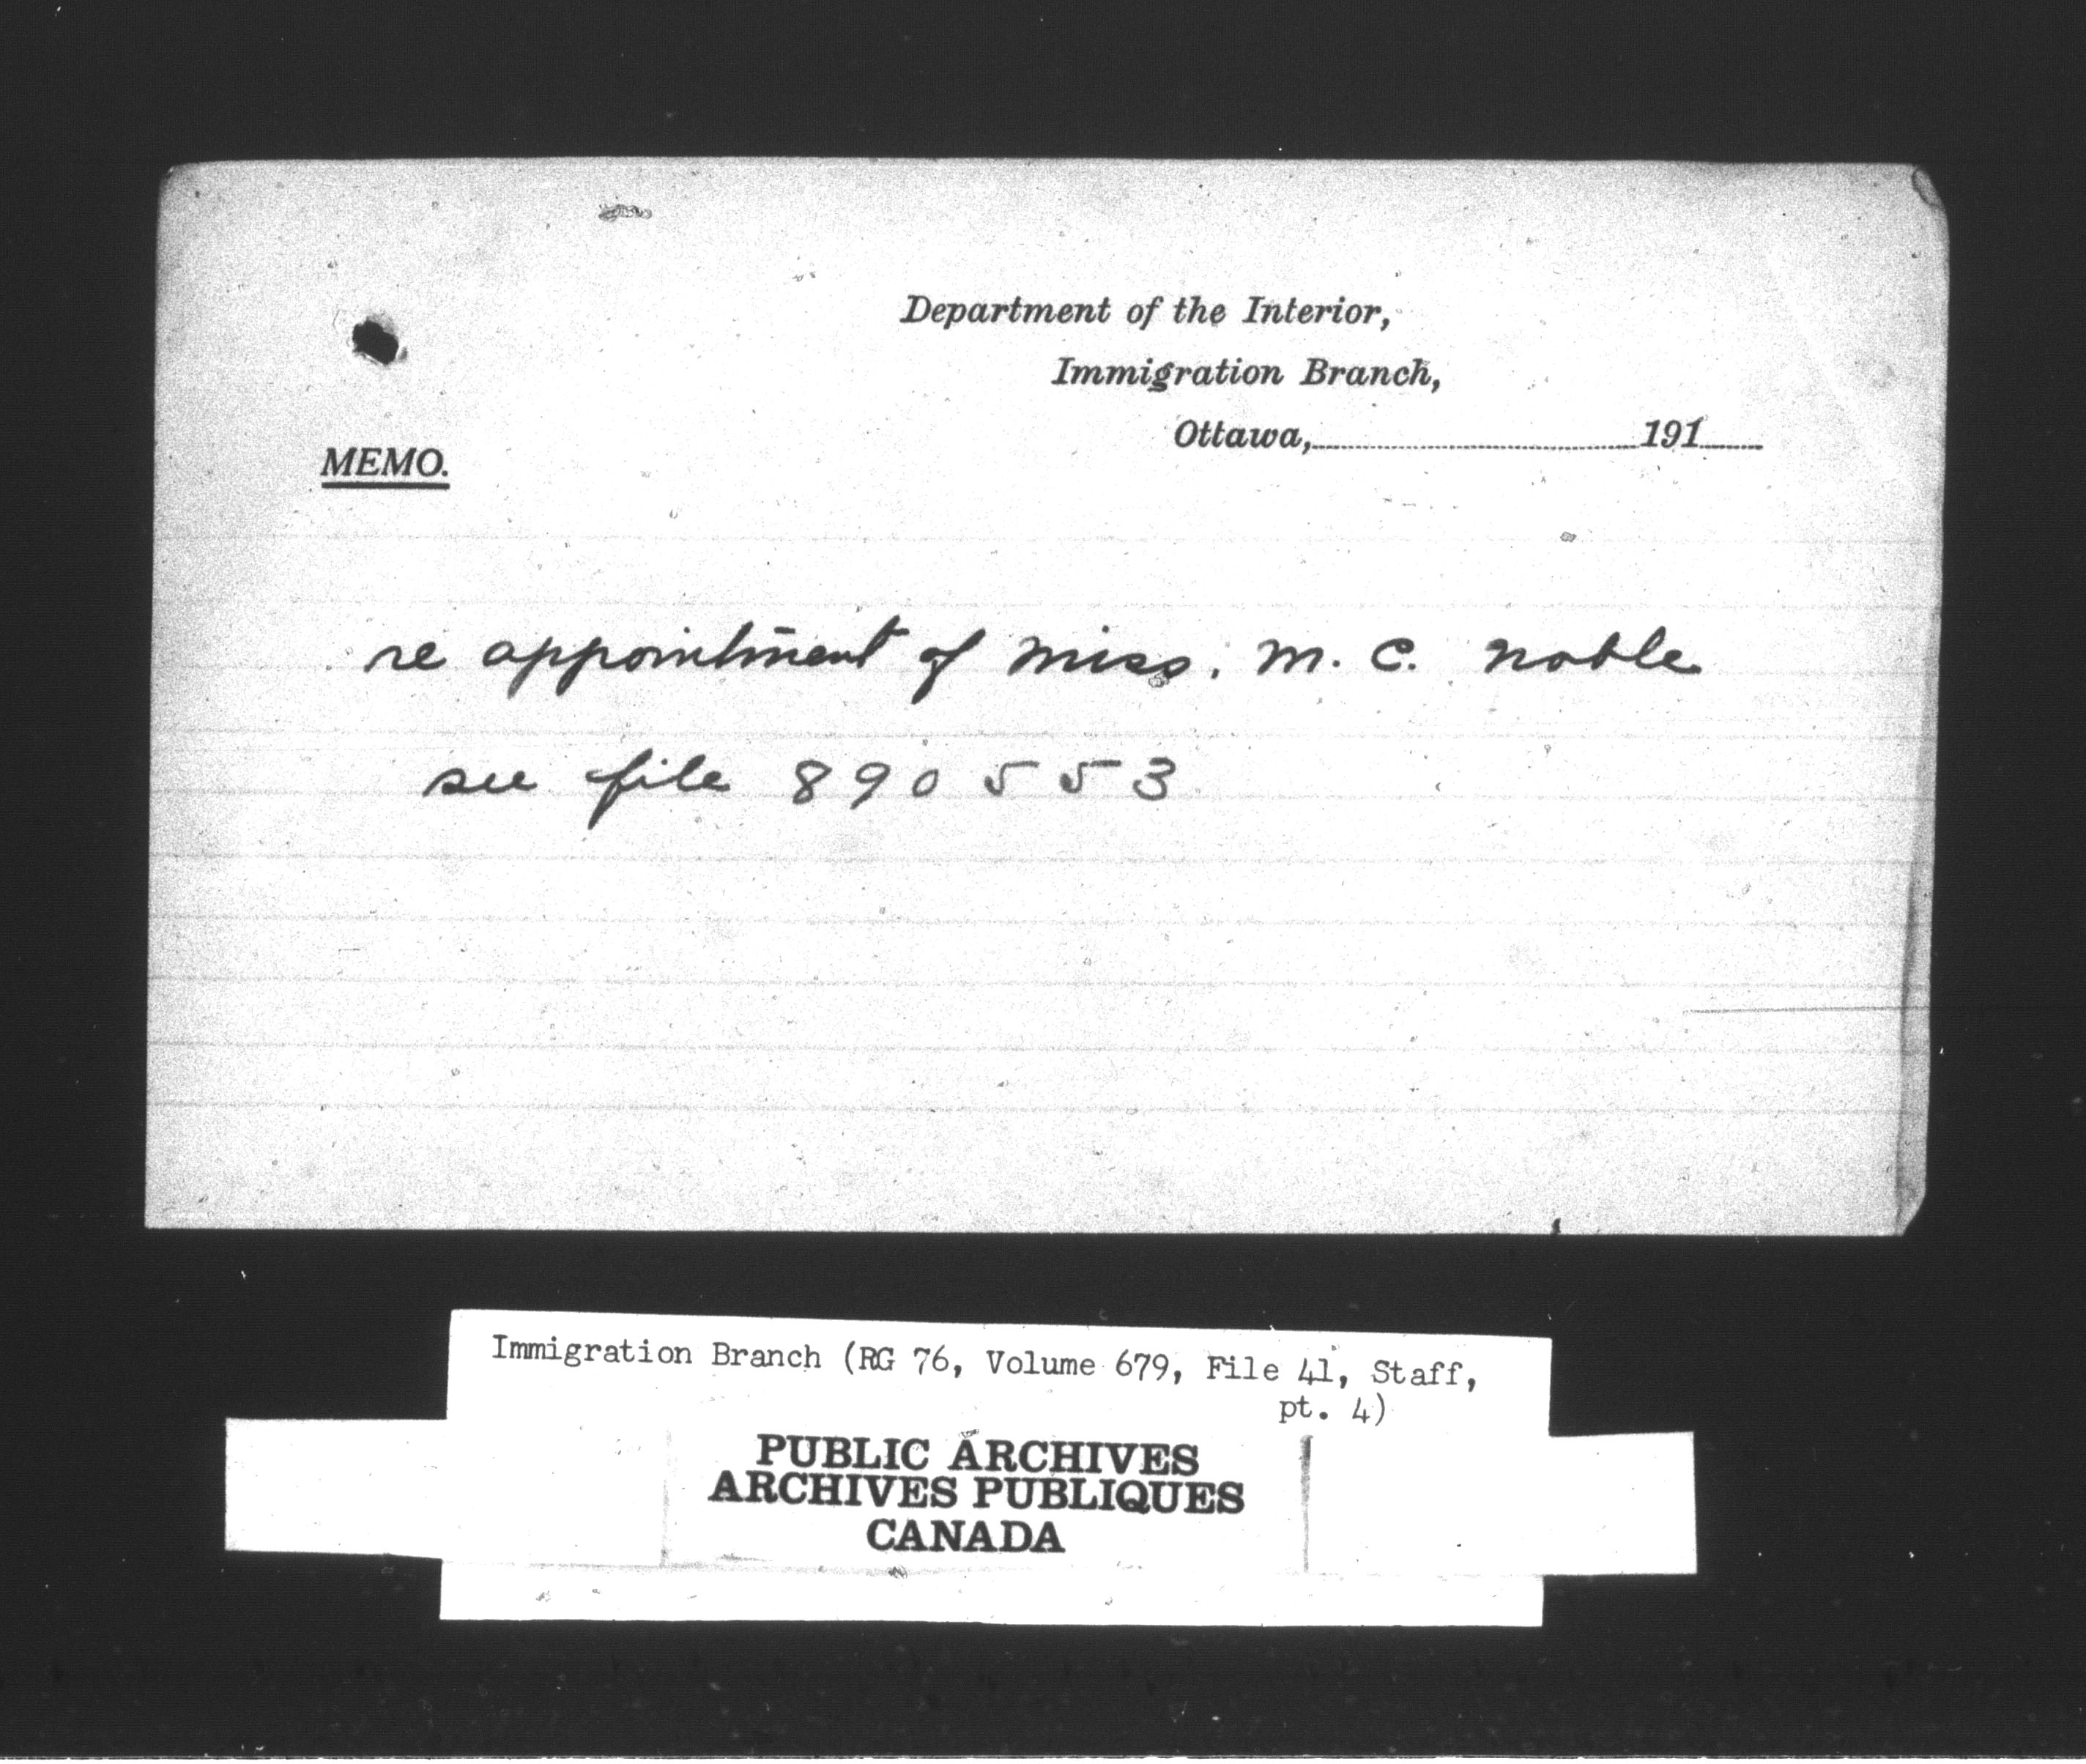 Department of the Interior,
Immigration Branch,
Ottawa, 191
MEMO.
re appointment of Miss. M. C. Noble
see file 890553
Immigration Branch (RG 76, Volume 679, File 41, Staff,
pt. 4)
PUBLIC ARCHIVES
ARCHIVES PUBLIQUES
CANADA